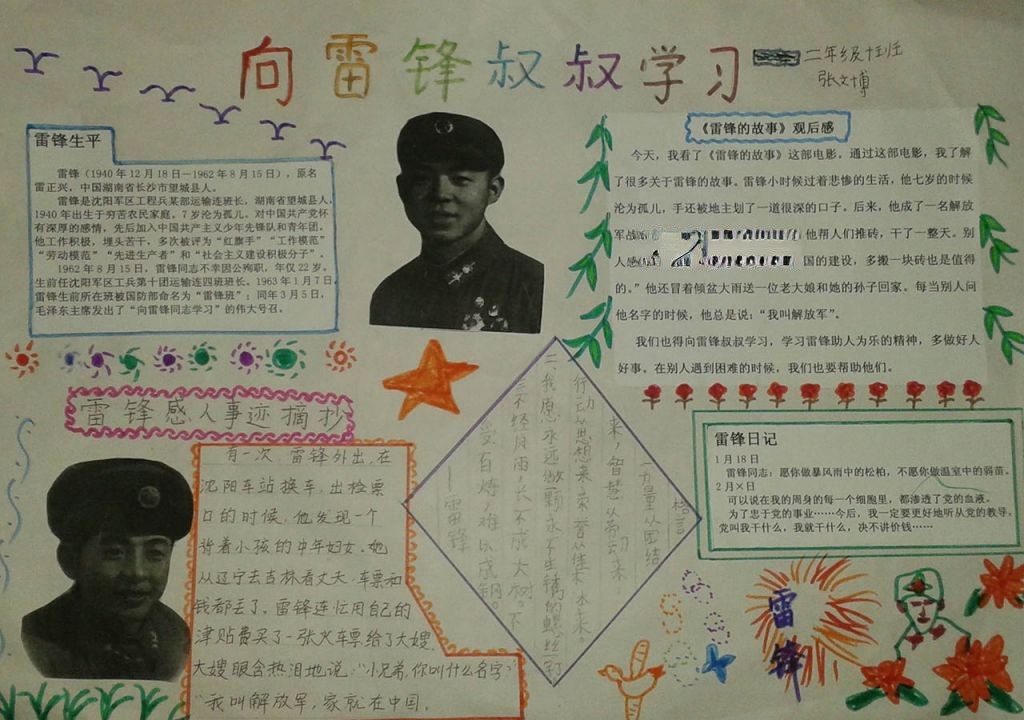 向雷锋叔叔学习
二年级
张文博
雷锋生平
雷锋（1940年12月18日—1962年8月15日），原名
雷正兴，中国湖南省长沙市望城县人。
雷锋是沈阳军区工程兵某部运输连班长，湖南省望城县人。
1940年出生于穷苦农民家庭。7岁沦为孤儿。对中国共产党怀
有深厚的感情，先后加入中国共产主义少年先锋队和青年团。
他工作积极，埋头苦干，多次被评为“红旗手”“工作模范”
“劳动模范”“先进生产者”和“社会主义建设积极分子”。
1962年8月15日，雷锋同志不幸因公殉职，年仅22岁。
生前任沈阳军区工兵第十团运输连四班班长。1963年1月7日，
雷锋生前所在班被国防部命名为“雷锋班”；同年3月5日，
毛泽东主席发出了“向雷锋同志学习”的伟大号召。
《雷锋的故事》观后感
今天，我看了《雷锋的故事》这部电影。通过这部电影，我了解
了很多关于雷锋的故事。雷锋小时候过着悲惨的生活，他七岁的时候
沦为孤儿，手还被地主划了一道很深的口子。后来，他成了一名解放
军战 他帮人们推砖，干了一整天。别
人感 国的建设，多搬一块砖也是值得
的。”他还冒着倾盆大雨送一位老大娘和她的孙子回家。每当别人问
他名字的时候，他总是说：“我叫解放军”。
我们也得向雷锋叔叔学习，学习雷锋助人为乐的精神，多做好人
好事。在别人遇到困难的时候，我们也要帮助他们。
雷锋感人事迹摘抄
有一次，雷锋外出，在
沈阳车站换车，出检票
口的时候，他发现一个
背着小孩的中年妇女。她
从辽宁去吉林看丈夫，车票和
钱都丢了。雷锋连忙用自己的
津贴费买了一张火车票给了大嫂，
大嫂眼含热泪地说：“小兄弟，你叫什么名字？”
“我叫解放军，家就在中国。
格言
一、力量从团结
来，智慧从劳动来，
行动从思想来，荣誉从集体来。
二、我愿永远做一颗永不生锈的螺丝钉
三、不经风雨，长不成大树。不
受百炼，难以成钢。
——雷锋
雷锋日记
1月18日
雷锋同志：愿你做暴风雨中的松柏，不愿你做温室中的弱苗。
2月×日
可以说在我的周身的每一个细胞里，都渗透了党的血液。
为了忠于党的事业……今后，我一定要更好地听从党的教导，
党叫我干什么，我就干什么，决不讲价钱……
雷
锋